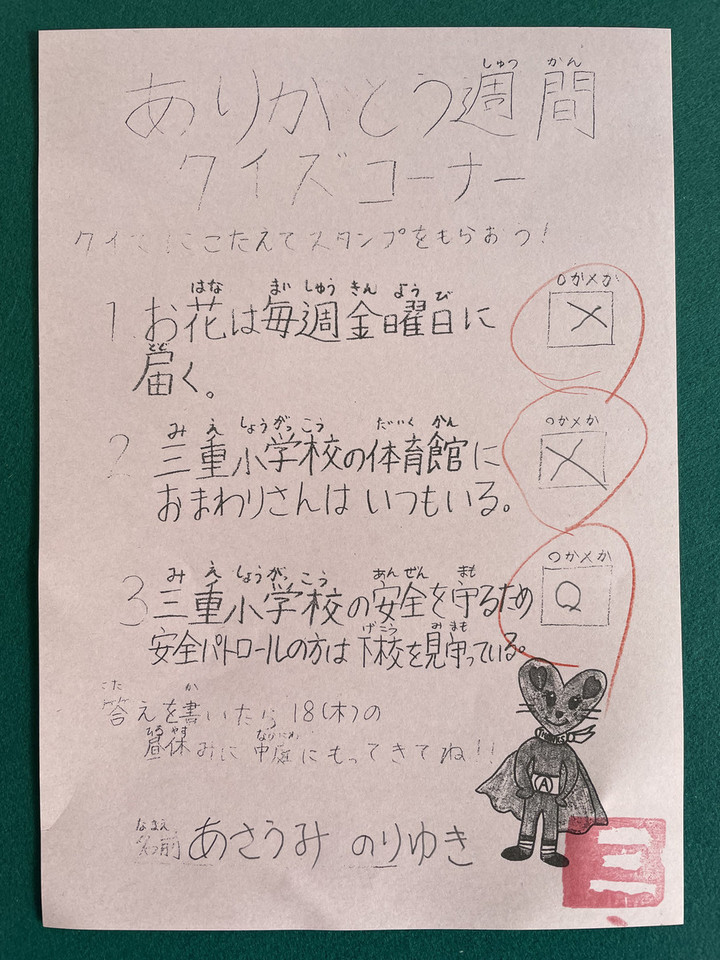 しゅう かん
ありがとう週間
クイズコーナー
クイズにこたえてスタンプをもらおう!
はな まい しゅう きん よう び
1.お花は毎週金曜日に
とど
届く。
○か×か
×
み え しょうがっこう たいいく かん
2 三重小学校の体育館に
おまわりさんは いつもいる。
○か×か
×
み え しょうがっこう あんぜん まも
3 三重小学校の安全を守るため
げこう みまも
安全パトロールの方は下校を見守っている。
○か×か
○
こた か
答えを書いたら18(木)の
ひる やす なかにわ
昼休みに中庭にもってきてね!!
A
なまえ
名前 あさうみ のりゆき
三